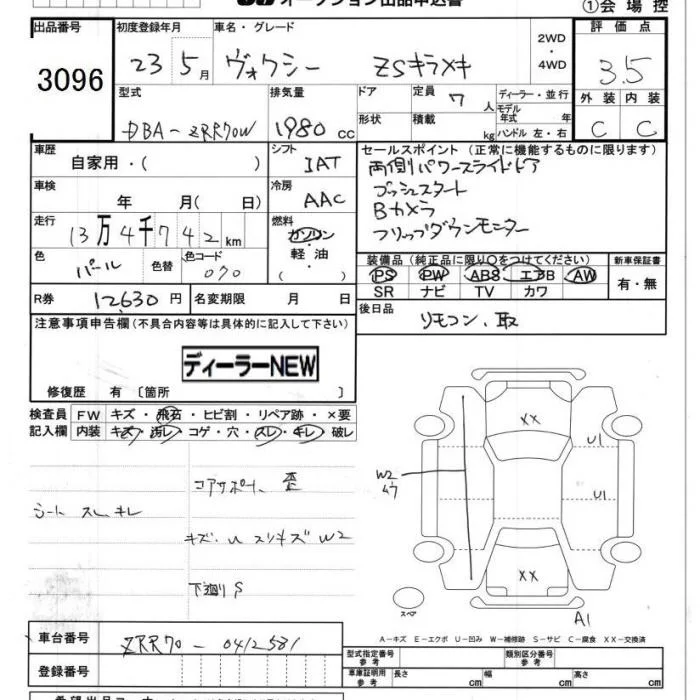 オークション出品申込書
①会場控
出品番号 初度登録年月 車名・グレード 2WD・4WD 評価点
3096 23 5月 ヴォクシー ZSキラメキ 3.5
型式 排気量 ドア 定員 7人 ディーラー・並行 外装 内装
DBA-ZRR70W 1980cc 形状 積載 kg モデル年式 年 ハンドル 左・右 C C
車歴 自家用・( ) シフト IAT セールスポイント(正常に機能するものに限ります)
両側パワースライドドア
車検 年 月( 日) 冷房 AAC プッシュスタート
Bカメラ
走行 13万4千742km 燃料 ガソリン・軽油・( ) フリップダウンモニター
色 パール 色替 色コード 070 装備品(純正品に限り○をつけてください) 新車保証書
PS PW ABS エアB AW 有・無
SR ナビ TV カワ
R券 12,630円 名変期限 月 日 後日品
リモコン、取
注意事項申告欄(不具合内容等は具体的に記入して下さい)
ディーラーNEW
修復歴 有〔箇所 〕
検査員 FW キズ・飛石・ヒビ割・リペア跡・×要
記入欄 内装 キズ・汚レ・コゲ・穴・スレ・キレ・破レ
コアサポート 歪
シート スレ キレ
キズ・U スリキズ W2
下廻りS
XX
U1
W2
U1
XX
スペア
A1
A-キズ E-エクボ U-凹み W-補修跡 S-サビ C-腐食 XX-交換済
車台番号 ZRR70-0412581
型式指定番号 参考 類別区分番号 参考
登録番号 車庫証明用 参考 長さ cm 幅 cm 高さ cm